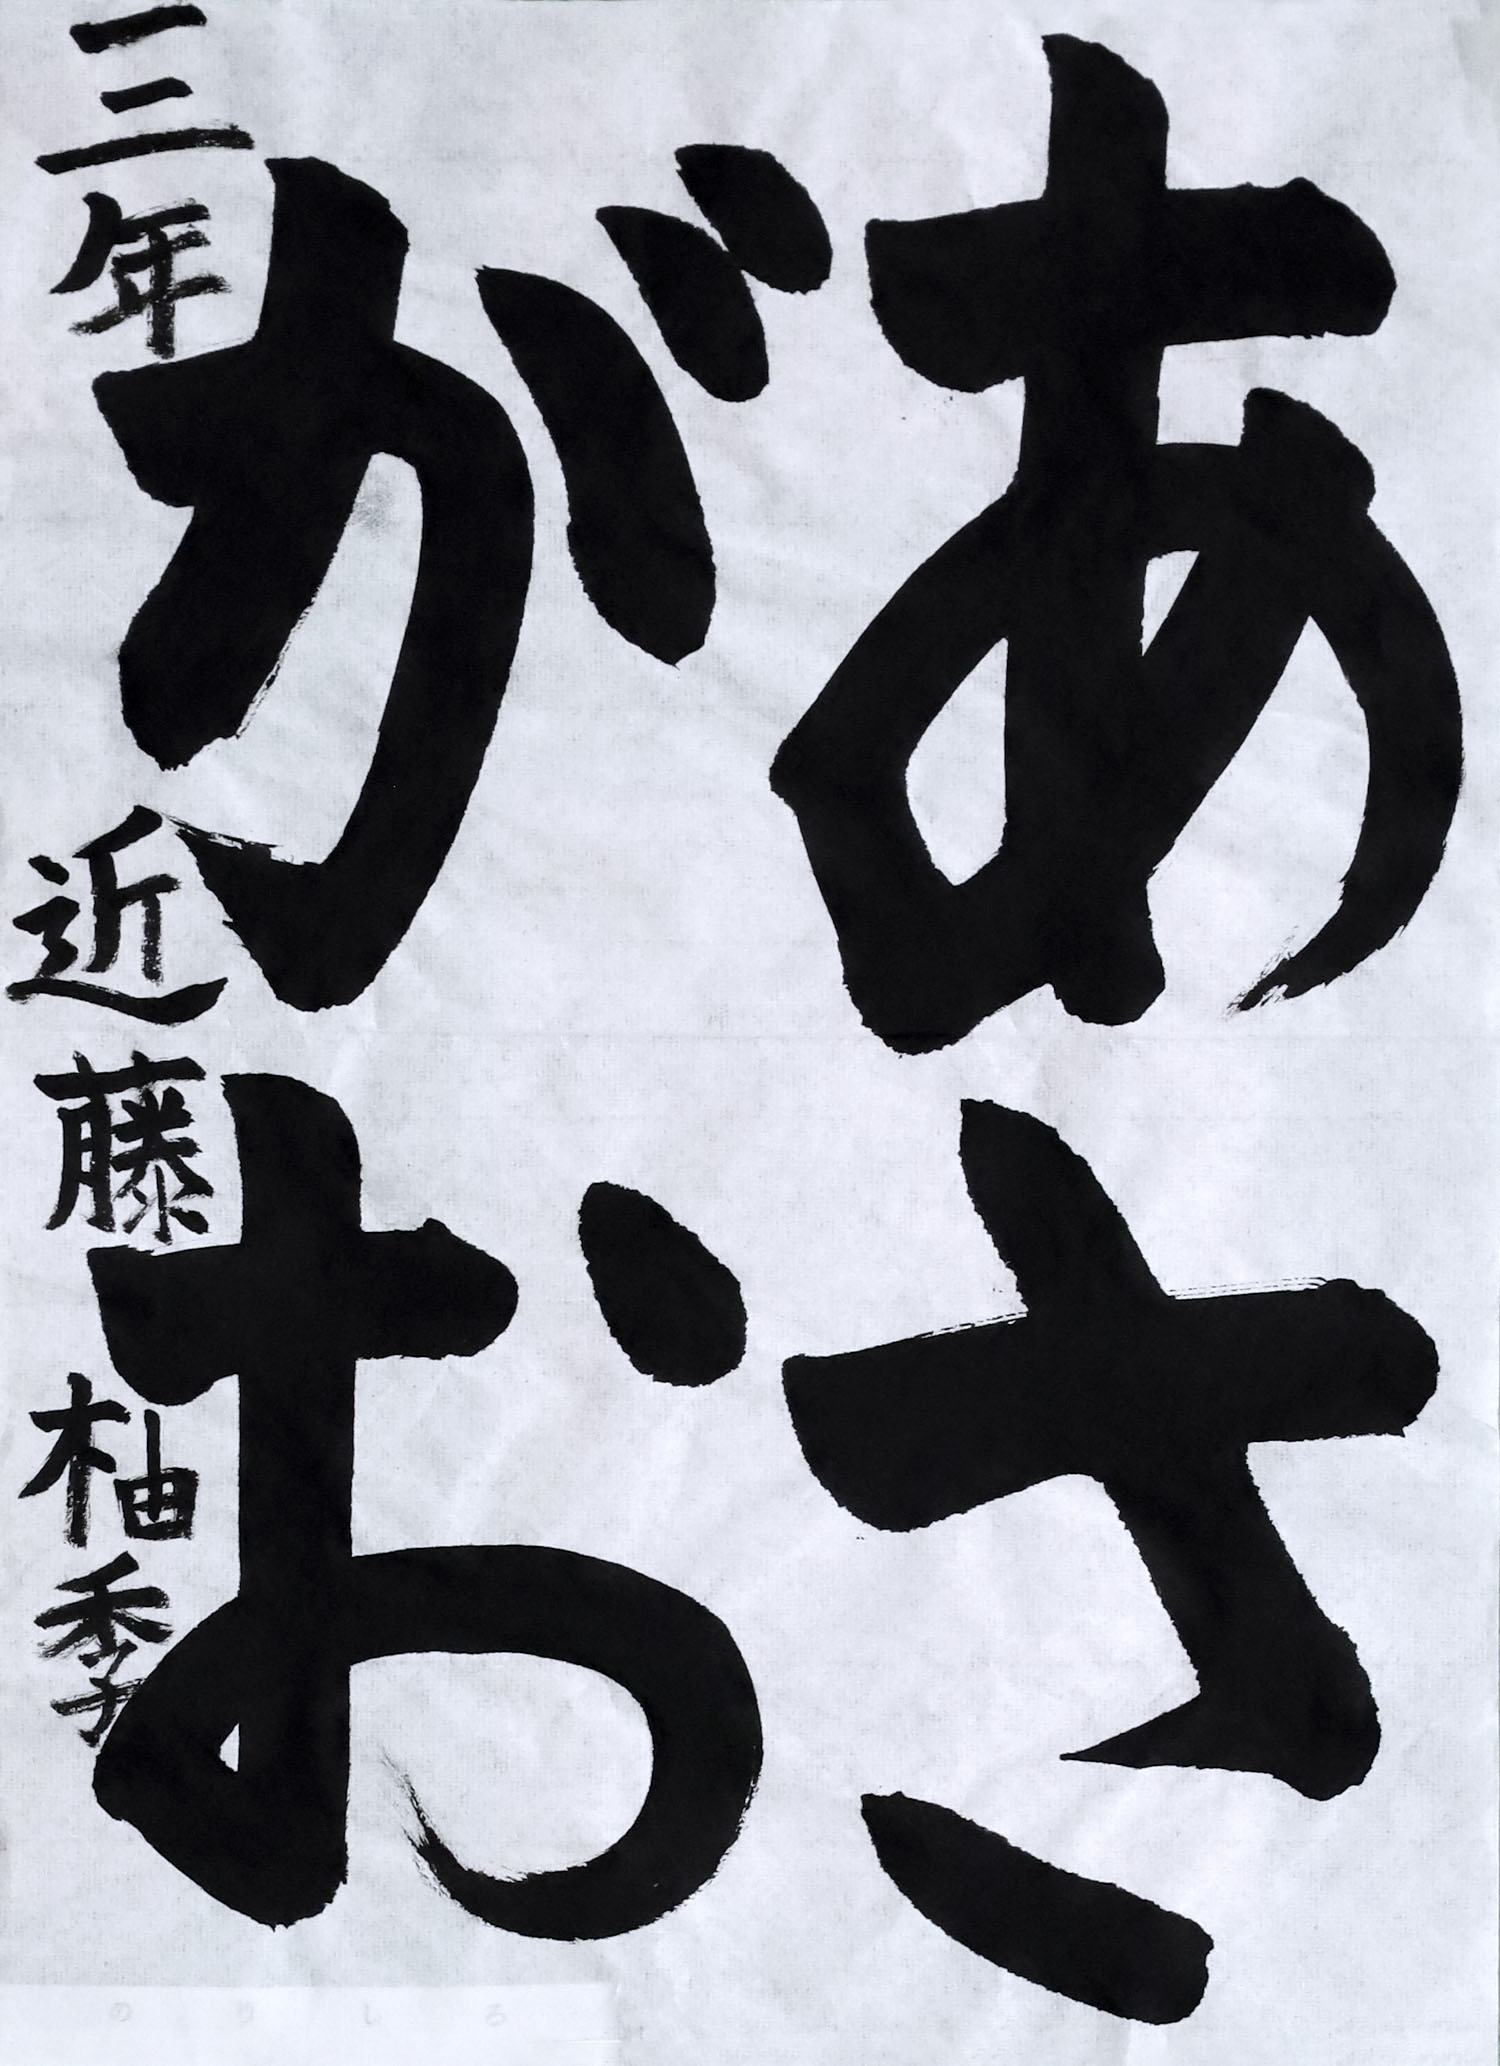 あさ
がお
三年 近藤柚季
のりしろ